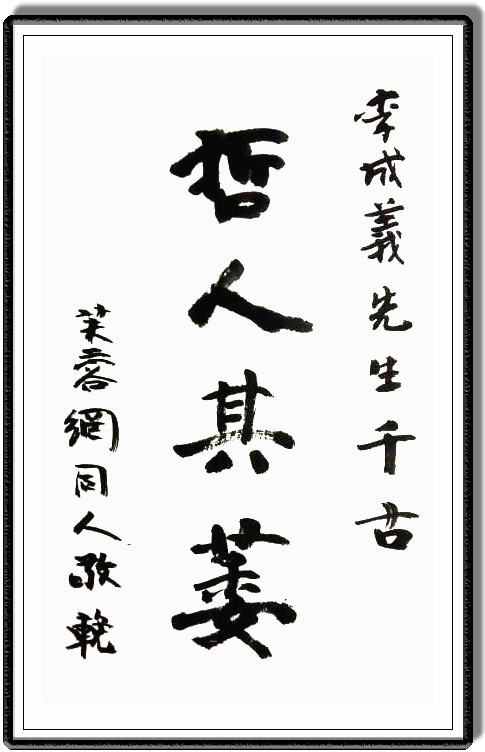 李成義先生千古
哲人其萎
芙蓉網同人敬輓